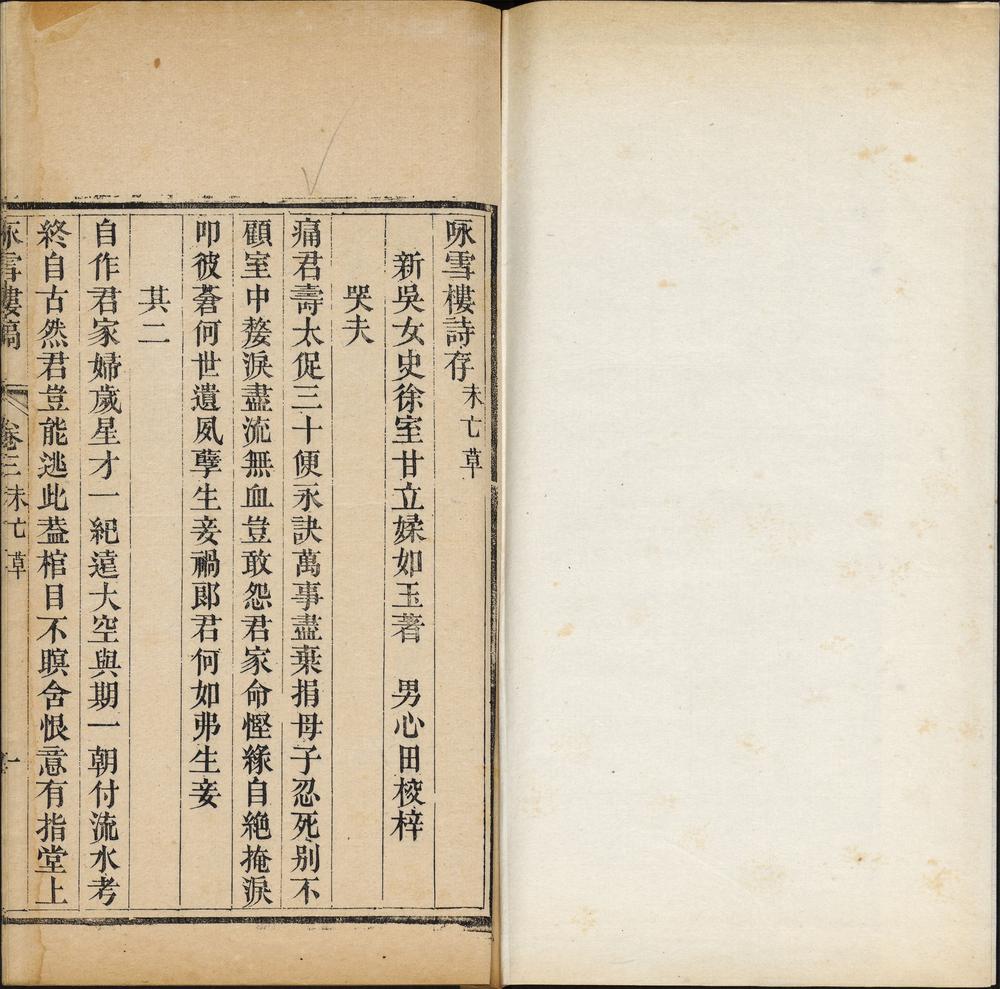 咏雪樓詩存未亡草
新吳女史徐室甘立媃如玉著　男心田校梓
哭夫
痛君壽太促三十便永訣萬事盡棄捐母子忍死別不
顧室中嫠淚盡流無血豈敢怨君家命慳緣自絶掩淚
叩彼蒼何世遺夙孽生妾禍郎君何如弗生妾
其二
自作君家婦歲星才一紀遠大空與期一朝付流水考
終自古然君豈能逃此葢棺目不瞑含恨意有指堂上
咏雪樓稿　卷三未亡草　一